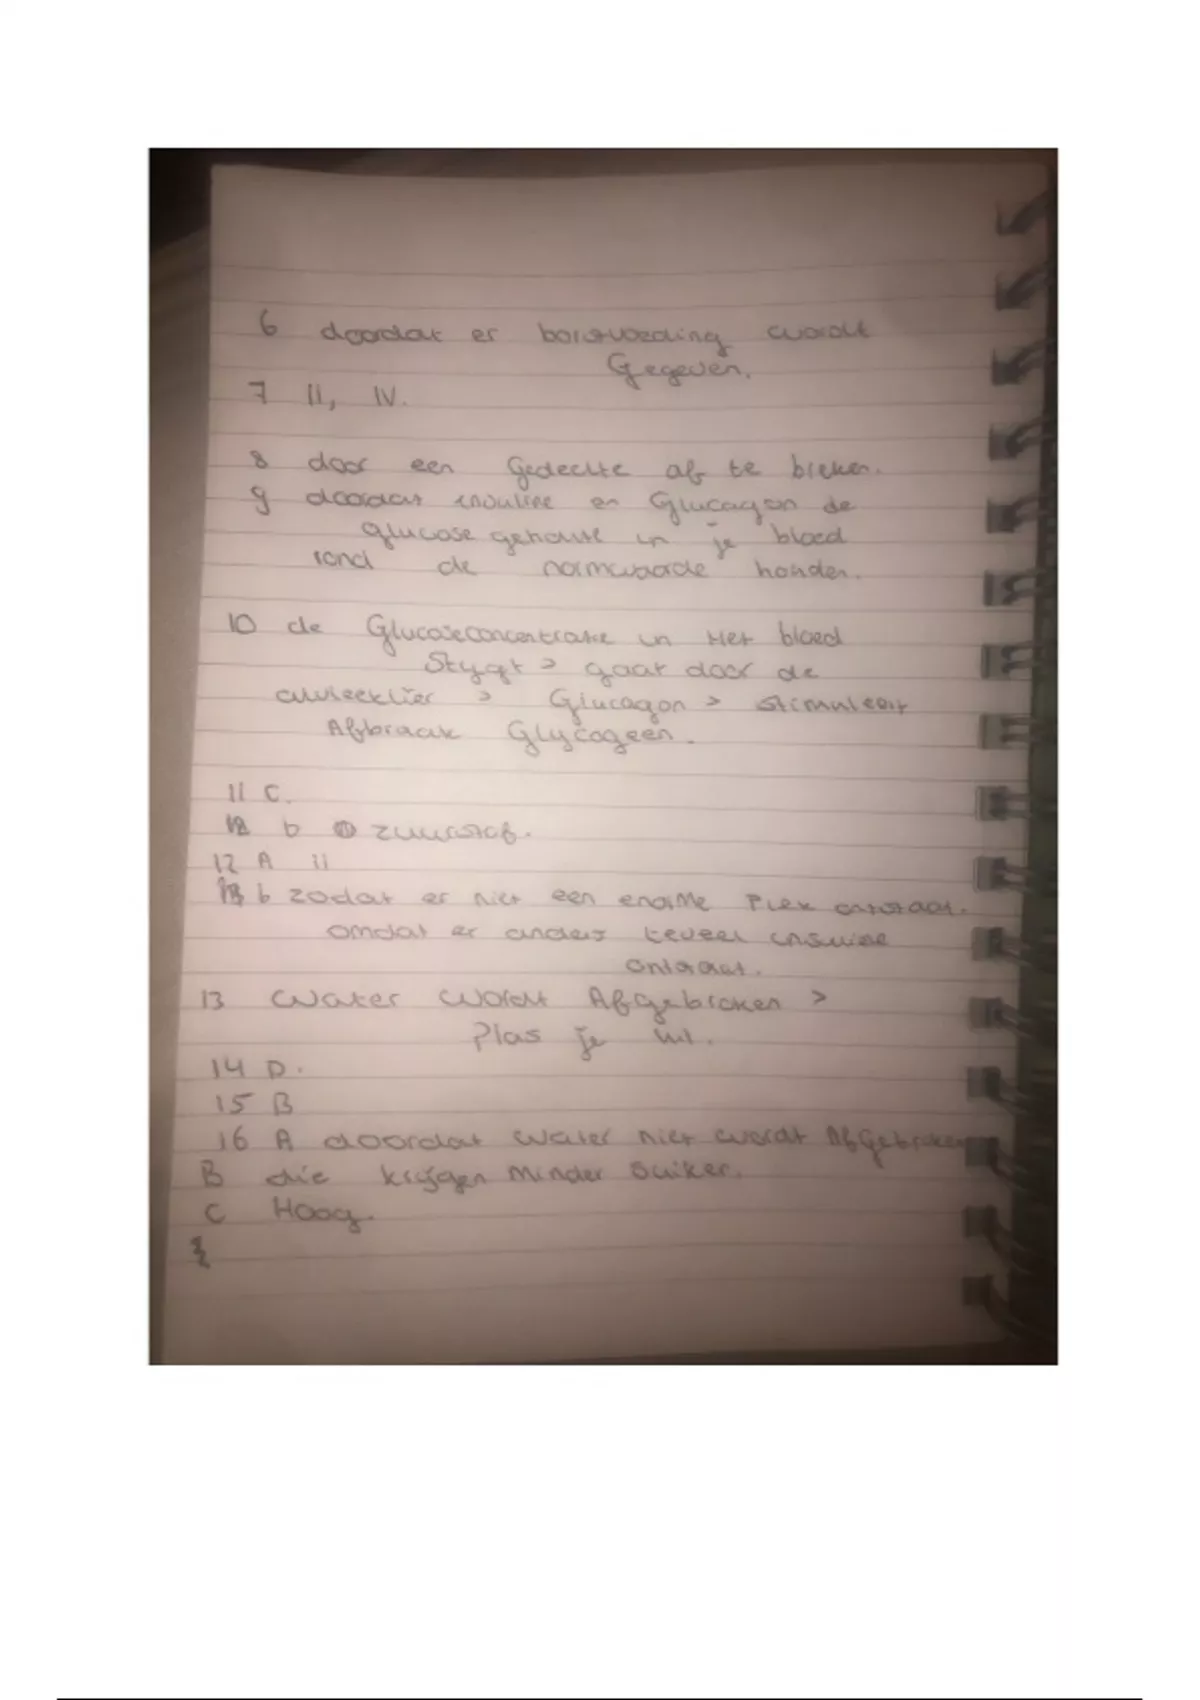 6 doordat er borstvoeding wordt
Gegeven.
7 II, IV.
8 door een Gedeelte af te breken.
9 doordat insuline en Glucagon de
glucose gehalte in je bloed
rond de normwaarde houden.
10 de Glucoseconcentratie in Het bloed
Stygt > gaat door de
alvleeklier > Glucagon > stimuleert
Afbraak Glycogeen.
11 C.
b zuurstof.
12 A ii
b zodat er niet een enorme Piek ontstaat.
omdat er anders teveel insuline
ontstaat.
13 Water wordt Afgebroken >
Plas je uit.
14 D.
15 B
16 A doordat water niet wordt AfGebroken
B die krijgen Minder Suiker.
C Hoog.